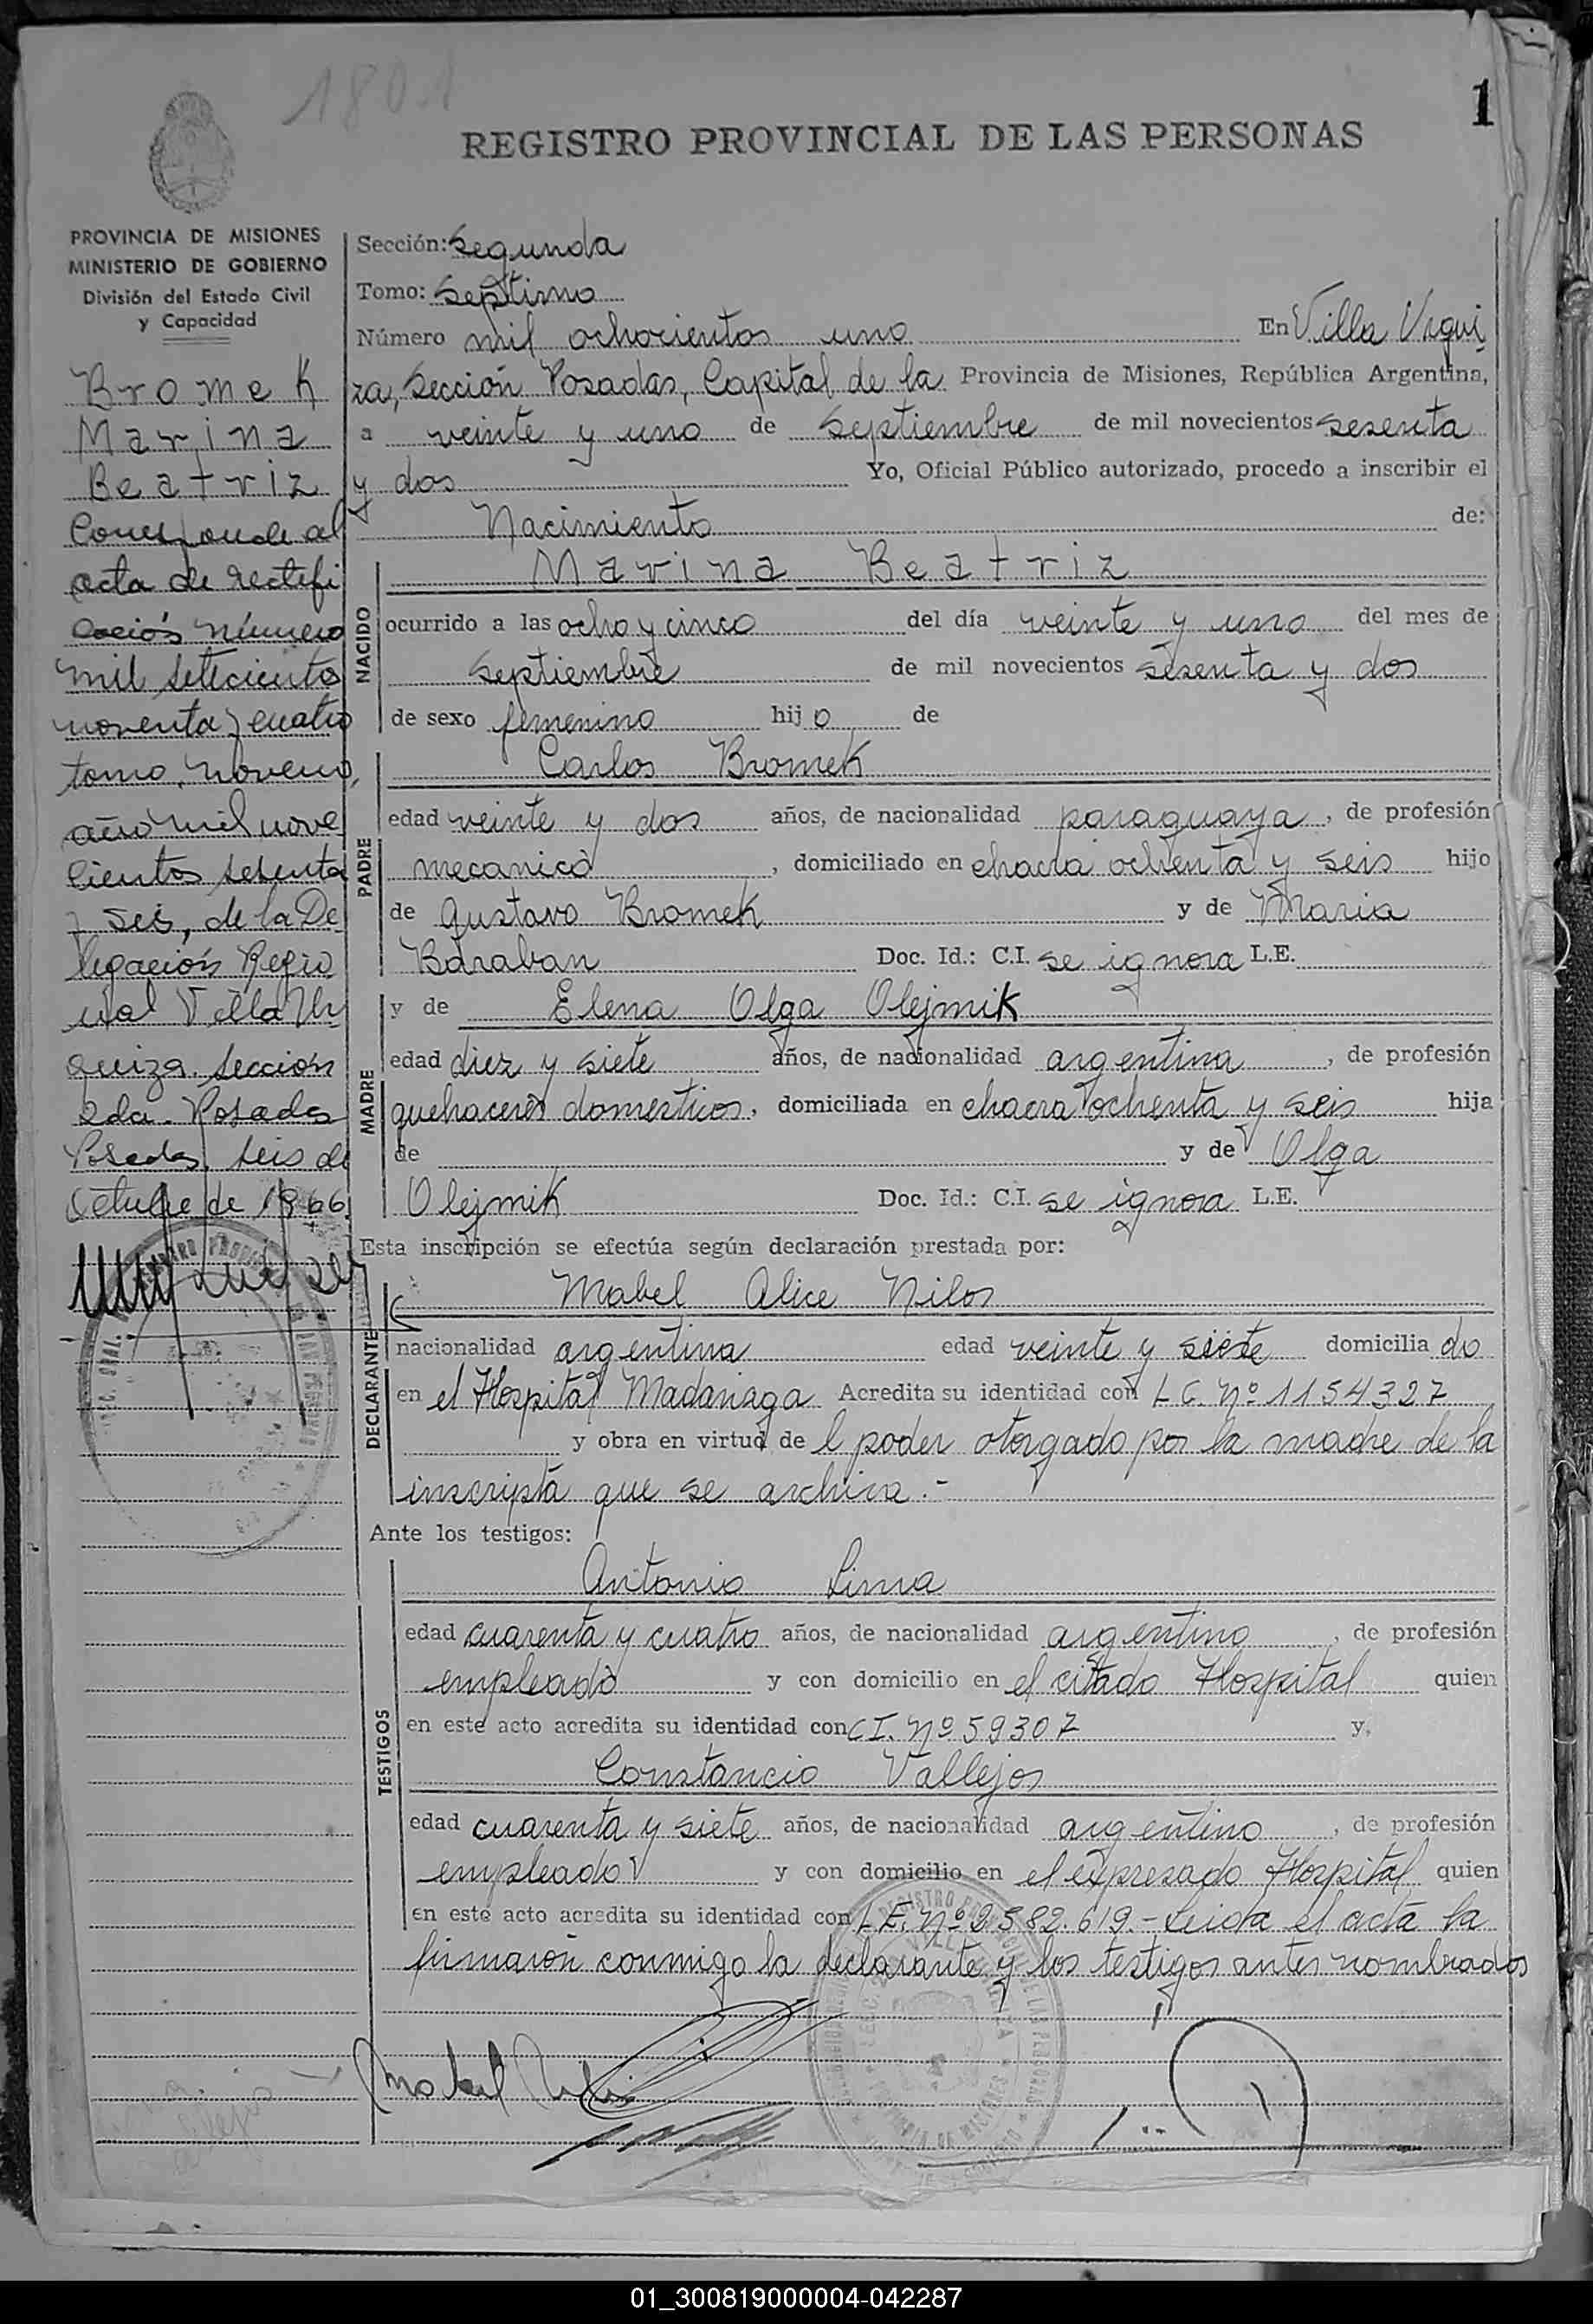 1801
1
REGISTRO PROVINCIAL DE LAS PERSONAS
PROVINCIA DE MISIONES
MINISTERIO DE GOBIERNO
División del Estado Civil
y Capacidad
Bromek
Marina
Beatriz
Corresponde al
acta de rectifi
cación número
mil setecientos
noventa y cuatro
tomo noveno,
año mil nove
cientos sesenta
y seis, de la De
legación Regio
nal Villa Ur
quiza. Sección
2da. Posadas
Posadas, seis de
Octubre de 1966.
Sección: Segunda
Tomo: Septimo
Número mil ochocientos uno En Villa Urqui
za, Sección Posadas, Capital de la Provincia de Misiones, República Argentina,
a veinte y uno de Septiembre de mil novecientos sesenta
y dos Yo, Oficial Público autorizado, procedo a inscribir el
Nacimiento de:
NACIDO
Marina Beatriz
ocurrido a las ocho y cinco del día veinte y uno del mes de
septiembre de mil novecientos sesenta y dos
de sexo femenino hijo de
PADRE
Carlos Bromek
edad veinte y dos años, de nacionalidad paraguaya, de profesión
mecanico, domiciliado en chacra ochenta y seis hijo
de Gustavo Bromek y de Maria
Baraban Doc. Id.: C.I. se ignora L.E.
MADRE
y de Elena Olga Olejmik
edad diez y siete años, de nacionalidad argentina, de profesión
quehaceres domesticos, domiciliada en chacra ochenta y seis hija
de y de Olga
Olejmik Doc. Id.: C.I. se ignora L.E.
Esta inscripción se efectúa según declaración prestada por:
DECLARANTE
Mabel Alice Nilos
nacionalidad argentina edad veinte y siete domiciliado
en el Hospital Madariaga Acredita su identidad con L C. Nº 1154327
y obra en virtud de l poder otorgado por la madre de la
inscripta que se archiva.-
Ante los testigos:
TESTIGOS
Antonio Lima
edad cuarenta y cuatro años, de nacionalidad argentino, de profesión
empleado y con domicilio en el citado Hospital quien
en este acto acredita su identidad con C I. Nº 59307 y,
Constancio Vallejos
edad cuarenta y siete años, de nacionalidad argentino, de profesión
empleado y con domicilio en el expresado Hospital quien
en este acto acredita su identidad con L E. Nº 2582.619.- Leida el acta la
firmaron conmigo la declarante y los testigos antes nombrados
01_300819000004-042287